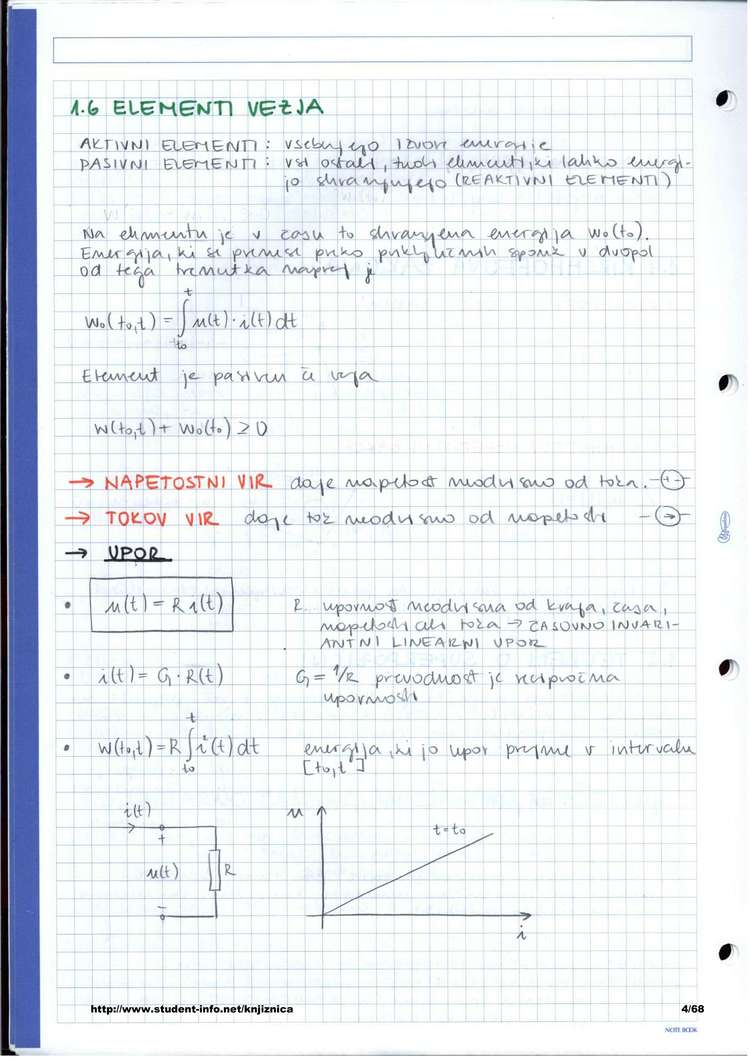 1.6 ELEMENTI VEZJA
AKTIVNI ELEMENTI: vsebujejo izvore energije
PASIVNI ELEMENTI: vsi ostali, tudi elementi, ki lahko energi-
jo shranjujejo (REAKTIVNI ELEMENTI)
Na elementu je v času to shranjena energija wo(to).
Energija, ki se prenese preko priključnih sponk v dvopol
od tega trenutka naprej je
wo(to,t) = ∫ u(t)·i(t) dt
t
to
Element je pasiven če velja
w(to,t) + wo(to) ≥ 0
→ NAPETOSTNI VIR daje napetost neodvisno od toka. + -
→ TOKOV VIR daje tok neodvisno od napetosti →
→ UPOR
• u(t) = R i(t) R upornost neodvisna od kraja, časa,
napetosti ali toka → ČASOVNO INVARI-
ANTNI LINEARNI UPOR
• i(t) = G · R(t) G = 1/R prevodnost je recipročna
upornosti
• w(to,t) = R ∫ i²(t) dt energija, ki jo upor prejme v intervalu
t
to
[to,t]
i(t)
+
u(t) R
-
u
t=to
i
http://www.student-info.net/knjiznica 4/68
NOTE BOOK